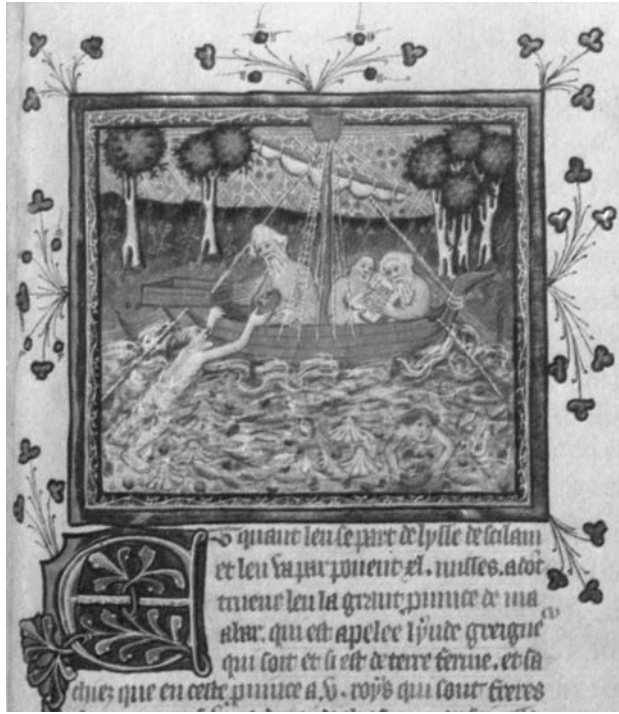 Et quant len se part de lysle de seilam
et len va par ponent xl. milles. adōt
treuue len la grant puince de ma
abar. qui est apelee lynde greigneur
qui soit et si est de terre ferme. et sa
chiez que en ceste puince a .v. roys qui sont freres